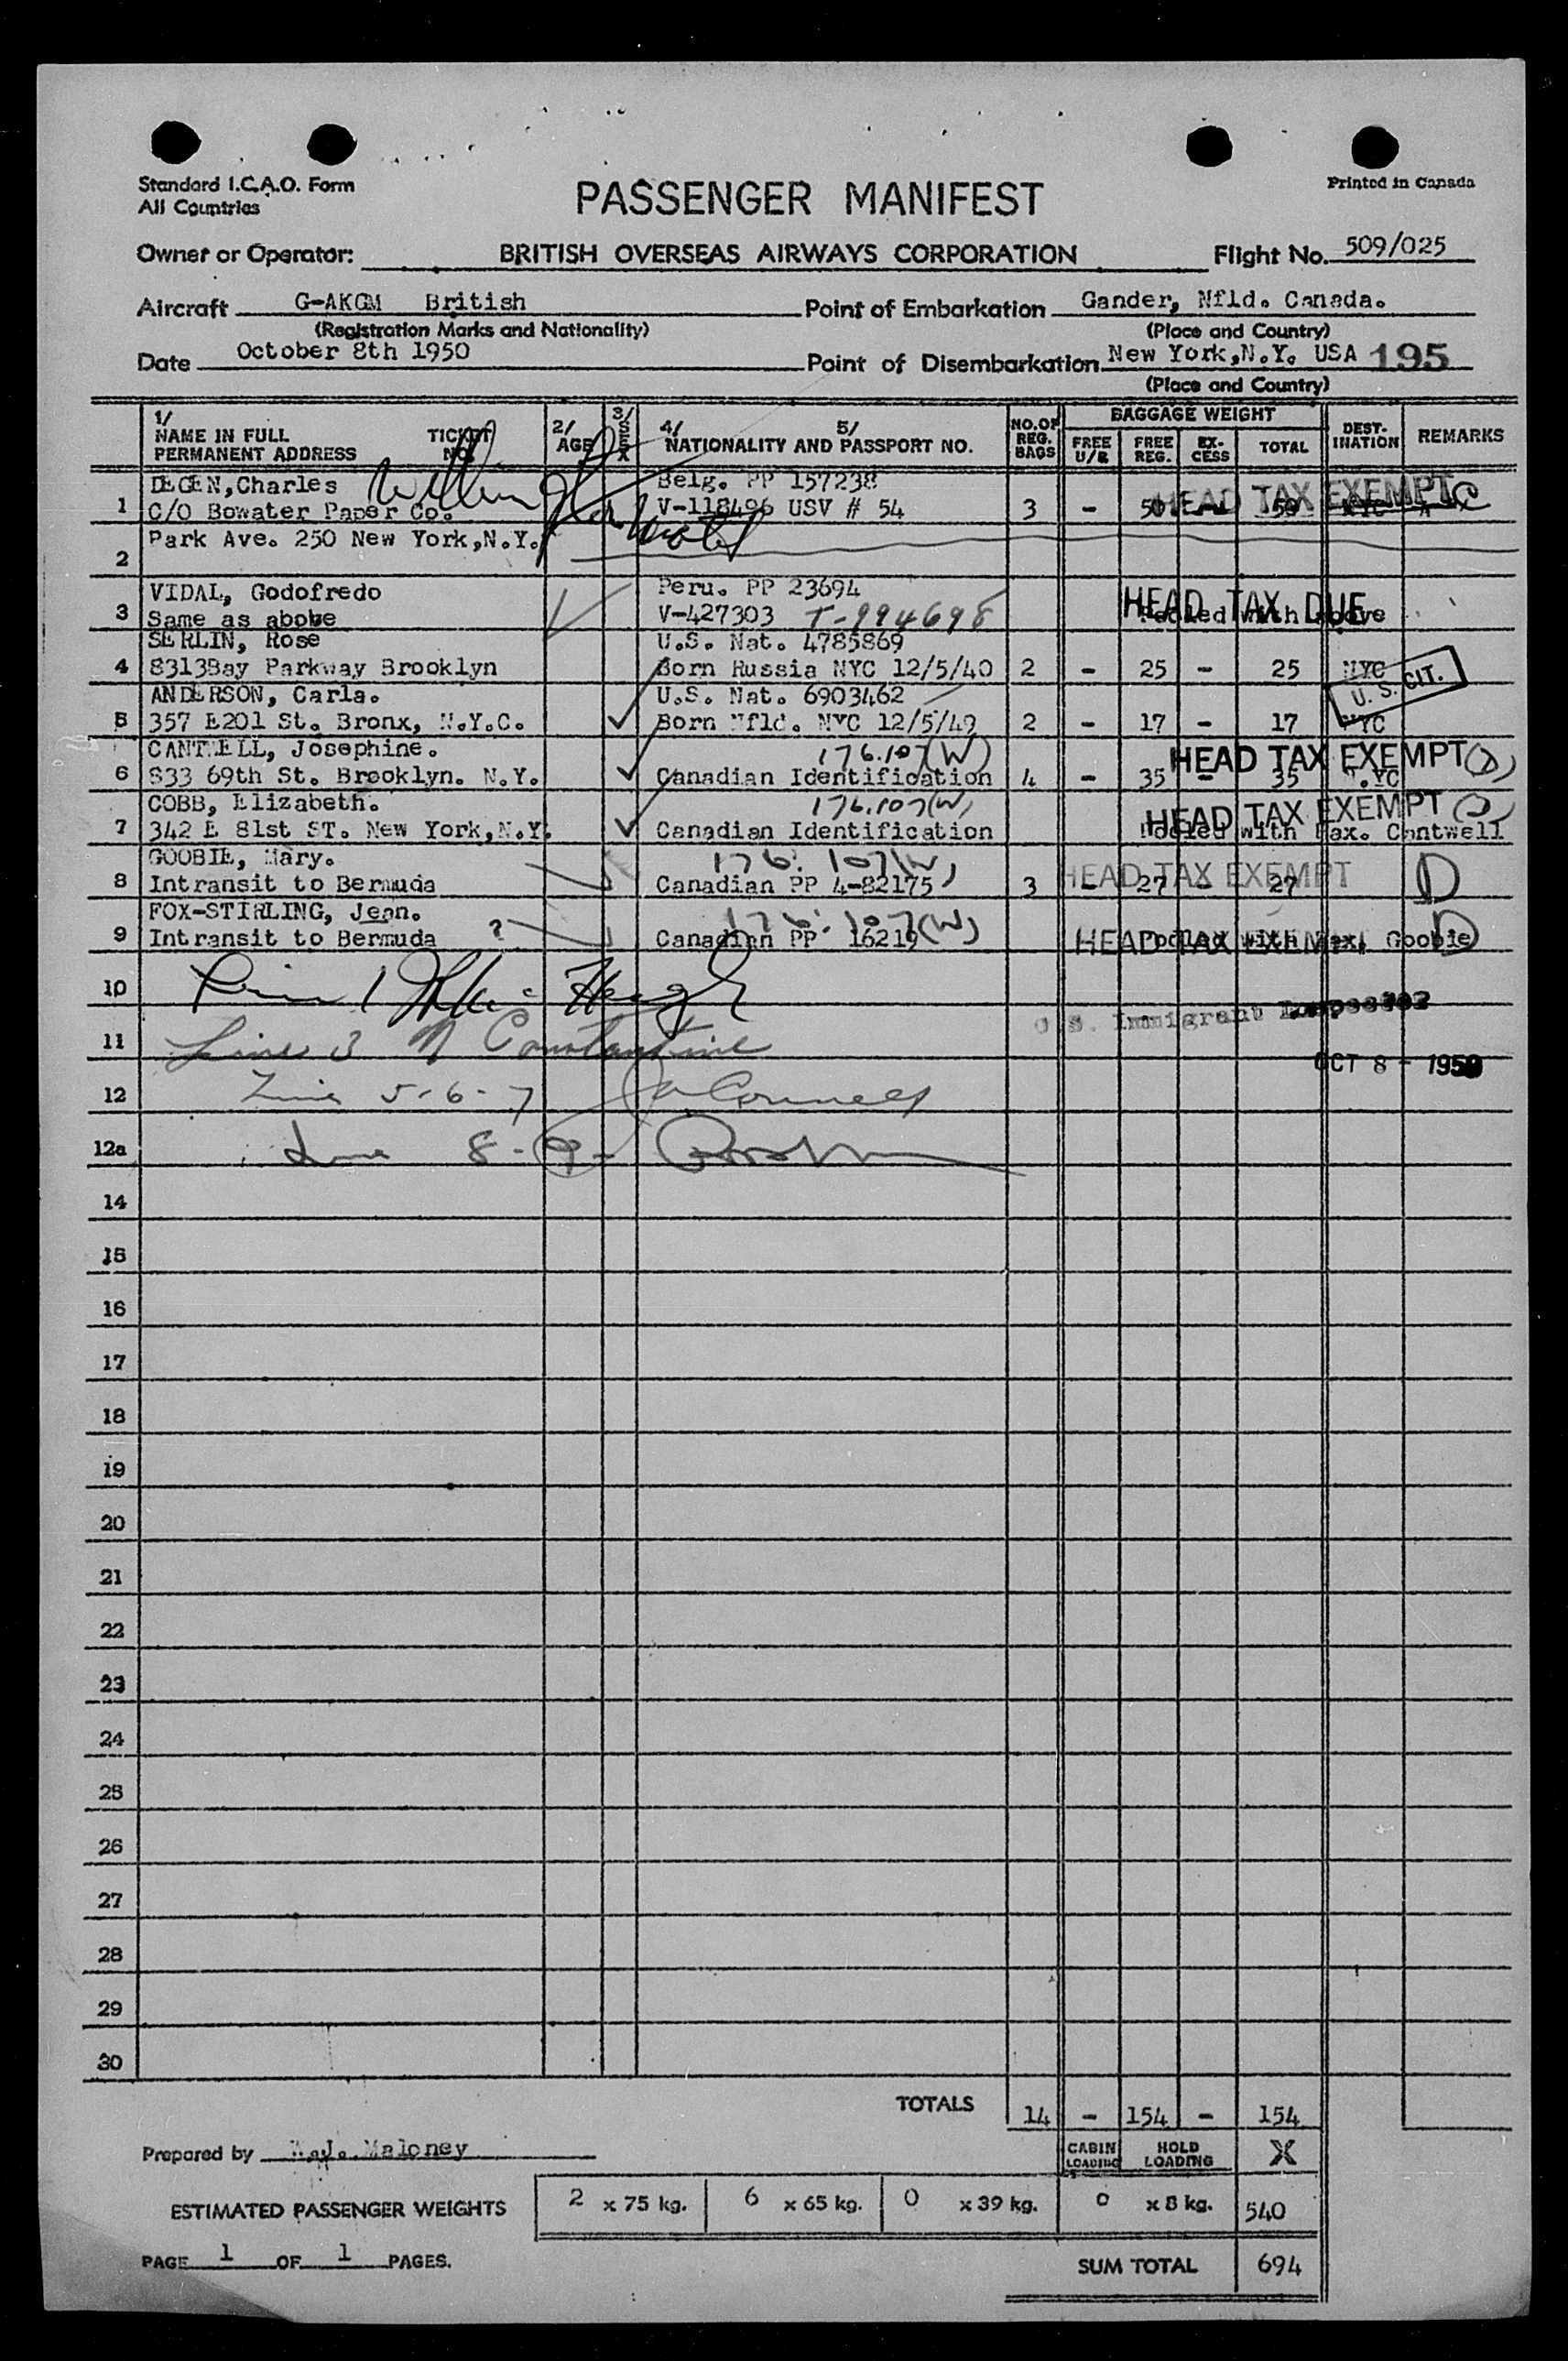 Standard I.C.A.O. Form
All Countries
PASSENGER MANIFEST
Printed in Canada
Owner or Operator: BRITISH OVERSEAS AIRWAYS CORPORATION Flight No. 509/025
Aircraft G-AKGM British Point of Embarkation Gander, Nfld. Canada.
(Registration Marks and Nationality) (Place and Country)
Date October 8th 1950 Point of Disembarkation New York,N.Y. USA 195
(Place and Country)
1/ NAME IN FULL PERMANENT ADDRESS TICKET NO. 2/ AGE 3/ SEX 4/ 5/ NATIONALITY AND PASSPORT NO. NO.OF REG. BAGS BAGGAGE WEIGHT FREE U/R FREE REG. EX-CESS TOTAL DEST-INATION REMARKS
DEGEN,Charles Belg. PP 157238 HEAD TAX EXEMPT C
1 C/O Bowater Paper Co. V-118496 USV # 54 3 - 50 - 50 NYC
Park Ave. 250 New York,N.Y.
2
VIDAL, Godofredo Peru. PP 23694 HEAD TAX DUE
3 Same as abobe V-427303 T-994698 Pooled with above
SERLIN, Rose U.S. Nat. 4785869
4 8313Bay Parkway Brooklyn Born Russia NYC 12/5/40 2 - 25 - 25 NYC
U.S. CIT.
ANDERSON, Carla. U.S. Nat. 6903462
5 357 E201 St. Bronx, N.Y.C. Born Nfld. NYC 12/5/49 2 - 17 - 17 NYC
CANTWELL, Josephine. 176.107(W) HEAD TAX EXEMPT (D)
6 833 69th St. Brooklyn. N.Y. Canadian Identification 4 - 35 - 35 N.YC
COBB, Elizabeth. 176.107(W) HEAD TAX EXEMPT (D)
7 342 E 81st ST. New York,N.Y. Canadian Identification Pooled with Pax. Cantwell
GOOBIE, Mary. 176.107(W) HEAD TAX EXEMPT D
8 Intransit to Bermuda Canadian PP 4-82175 3 - 27 - 27
FOX-STIRLING, Jean. 176.107(W) HEAD TAX EXEMPT D
9 Intransit to Bermuda ? Canadian PP 16219 Pooled with Pax. Goobie
10 Line 1
U.S. Immigrant Inspector
11 Line 3 N Constantine
OCT 8 - 1950
12 Line 5-6-7
12a Line 8-9-
14
15
16
17
18
19
20
21
22
23
24
25
26
27
28
29
30
TOTALS 14 - 154 - 154
Prepared by W.J. Maloney CABIN LOADING HOLD LOADING X
ESTIMATED PASSENGER WEIGHTS 2 x 75 kg. 6 x 65 kg. 0 x 39 kg. 0 x 8 kg. 540
PAGE 1 OF 1 PAGES. SUM TOTAL 694